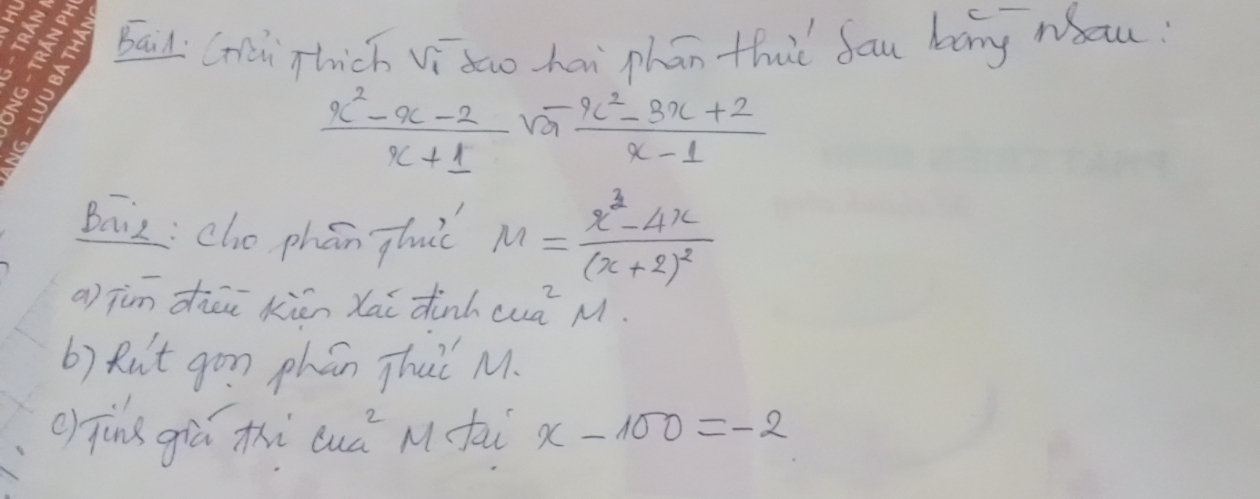 HƯ
TRẦN
ƯƠNG - TRẦN PHƯ
LƯU BÁ THĂNG
Bài 1: Giải thích vì sao hai phân thức sau bằng nhau:
\frac{x^2 - x - 2}{x + 1} và \frac{x^2 - 3x + 2}{x - 1}
Bài 2: Cho phân thức M = \frac{x^3 - 4x}{(x + 2)^2}
a) Tìm điều kiện xác định của M.
b) Rút gọn phân thức M.
c) Tính giá trị của M tại x - 100 = -2